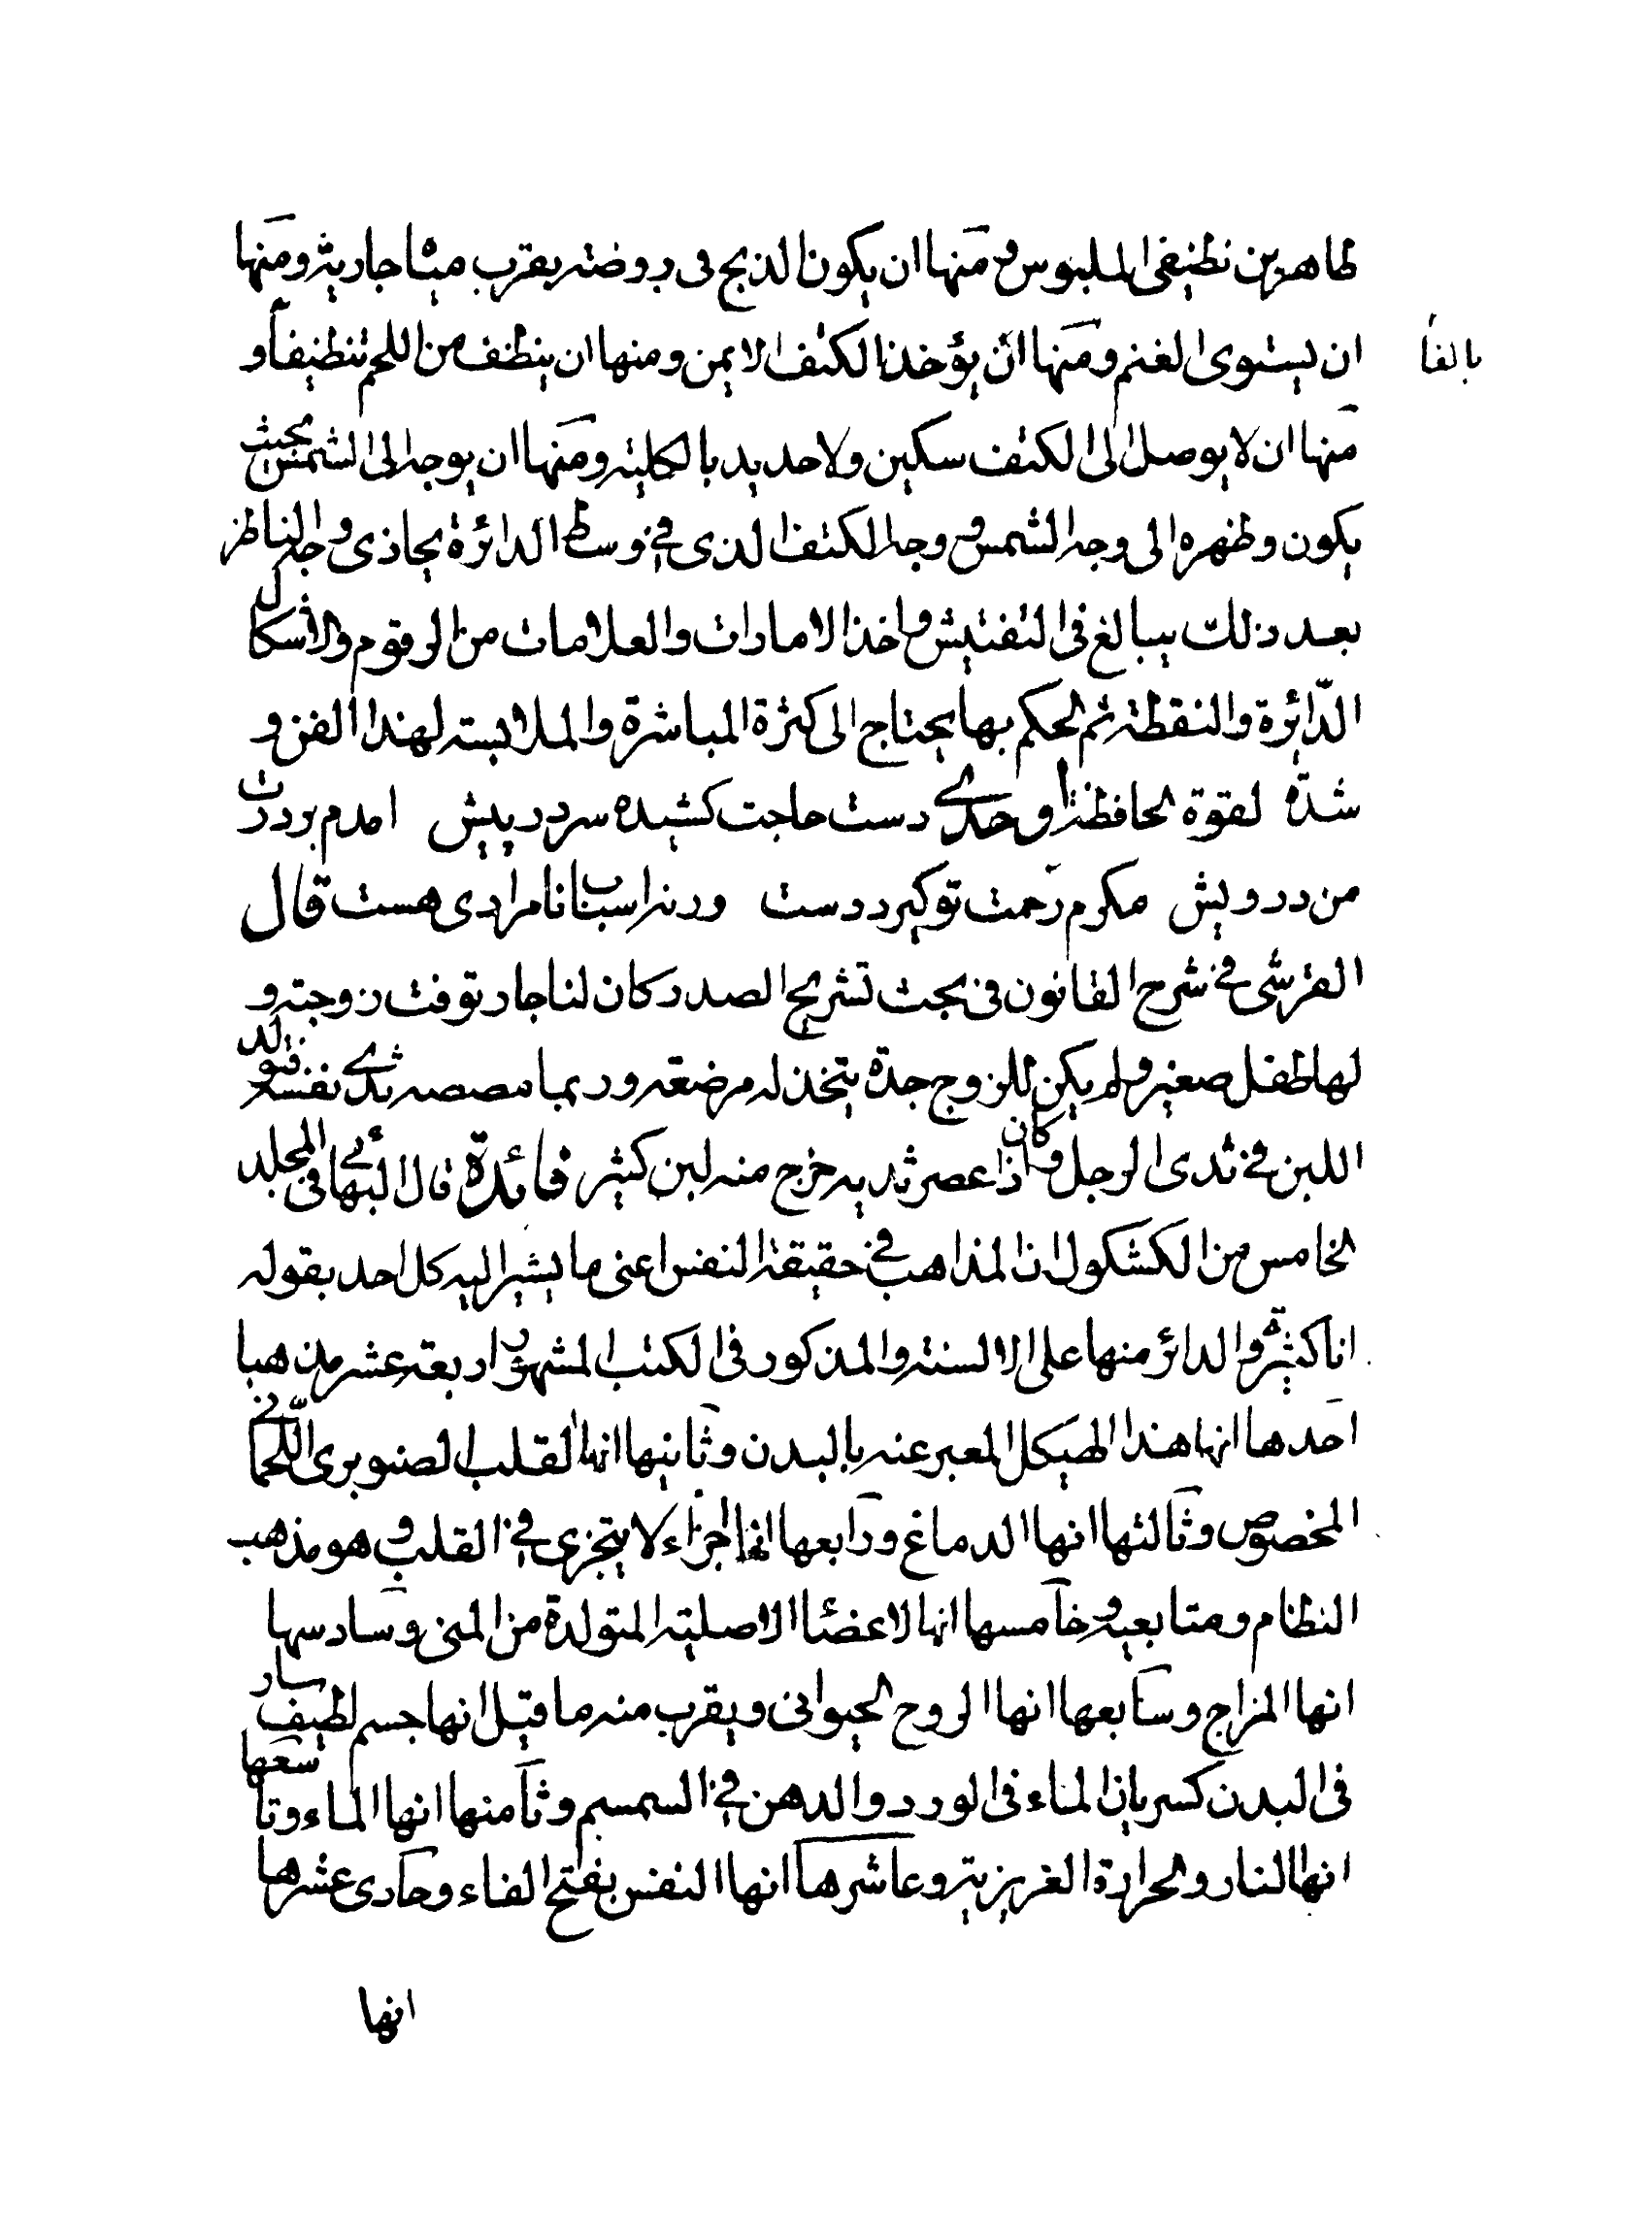 طاهرين نظيفى الملبوس و منها ان يكون الذبح فى روضته بقرب مياه جارية و منها
ان يستوى الغنم و منها ان يؤخذ الكتف الايمن و منها ان ينظف من اللحم تنظيفا و
بالفا
منها ان لا يوصل الى الكتف سكين ولا حديد بالكلية و منها ان يوجه الى الشمس بحيث
يكون و ظهره الى وجه الشمس و وجه الكتف الذى فى وسط الدائرة يحاذى وجه الناظر
بعد ذلك يبالغ فى التفتيش و اخذ الامارات والعلامات من الرقوم والاشكال
الدّائرة والنقطة ثم الحكم بها يحتاج الى كثرة المباشرة والملابسة لهذا الفن و
شدّة لقوة الحافظة اوحدى دست حاجت كشيده سر در پيش امدم بر درت
من درويش مكرم رحمت تو كيرد دست ورنه اسباب نامرادى هست قال
القرشى فى شرح القانون فى بحث تشريح الصدر كان لنا جار توفت زوجته و
لها طفل صغير و لم يكن للزوج جدة يتخذ له مرضعة و ربما مصصه ثدى نفسه فتولد
اللبن فى ثدى الرجل و كان اذا عصر ثديه خرج منه لبن كثير فائدة قال البهائى فى المجلد
الخامس من الكشكول ان المذاهب فى حقيقة النفس اعنى ما يشير اليه كل احد بقوله
انا كثيرة والدائر منها على الالسنة والمذكور فى الكتب المشهورة اربعة عشر مذهبا
احدها انها هذا الهيكل المعبر عنه بالبدن و ثانيها انها القلب الصنوبرى اللّحمانى
المخصوص و ثالثها انها الدماغ و رابعها انها اجزاء لا يتجزى فى القلب و هو مذهب
النظام و متابعيه و خامسها انها الاعضاء الاصلية المتولدة من المنى و سادسها
انها المزاج و سابعها انها الروح الحيوانى و يقرب منه ما قيل انها جسم لطيف سار
فى البدن كسريان الماء فى الورد والدهن فى السمسم و ثامنها انها الماء و تاسعها
انها النار والحرارة الغريزية و عاشرها انها النفس بفتح الفاء و حادى عشرها
انها